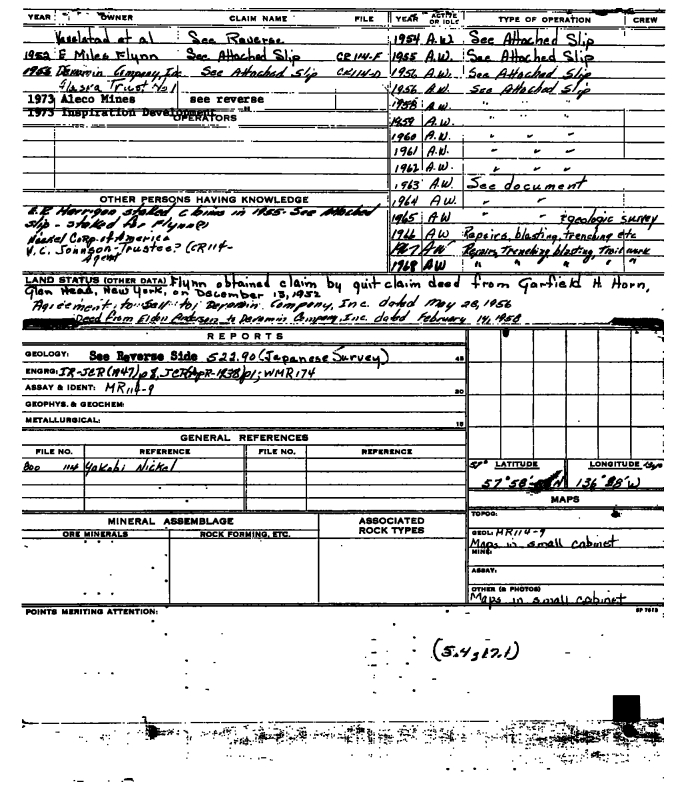 YEAR OWNER CLAIM NAME FILE YEAR ACTIVE OR IDLE TYPE OF OPERATION CREW
et al See Reverse 1954 A.W. See Attached Slip
1952 E Miles Flynn See Attached Slip CR 114-F 1955 A.W. See Attached Slip
1956 Company, Inc See Attached Slip CR 114-D 1956 A.W. See Attached Slip
Alaska Trust No 1 1956 A.W. See Attached Slip
1973 Aleco Mines see reverse 1958 A.W. " " "
1973 Inspiration Development " 1959 A.W. " " "
OPERATORS
1960 A.W. " " "
1961 A.W. " " "
1962 A.W. " " "
1963 A.W. See document
OTHER PERSONS HAVING KNOWLEDGE 1964 A.W. " " "
staked claims in 1955 - See Attached
slip - staked for Flynn 1965 AW " " geologic survey
Nickel Corp. of America 1966 AW Repairs, blasting, trenching etc
V.C. Johnson - Trustee? (CR 114- 1967 AW Repairs, Trenching blasting, Trail work
Agent 1968 AW " " " "
LAND STATUS (OTHER DATA) Flynn obtained claim by quit claim deed from Garfield H Horn,
Glen Head, New York, on December 13, 1952
Agreement to Sell to Company, Inc. dated May 28, 1956
Deed from Eldon Anderson to Company, Inc. dated February 14, 1958
REPORTS
GEOLOGY: See Reverse Side 522.90 (Japanese Survey) 45
ENGRG: IR-JCR (1947) p 8, WMR 174
ASSAY & IDENT: MR 114-9 30
GEOPHYS. & GEOCHEM:
METALLURGICAL: 15
GENERAL REFERENCES
FILE NO. REFERENCE FILE NO. REFERENCE
800 114 Yakobi Nickel
LATITUDE LONGITUDE
57° 58' N 136° W
MAPS
TOPOG:
MINERAL ASSEMBLAGE ASSOCIATED ROCK TYPES
ORE MINERALS ROCK FORMING, ETC.
GEOL: MR 114-9
Maps in small cabinet
MINE:
ASSAY:
OTHER (& PHOTOS)
Maps in small cabinet
POINTS MERITING ATTENTION:
(5.4;17.1)